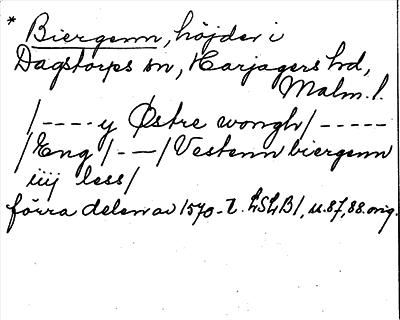 * Biergenn, höjder i
Dagstorps sn, Harjagers hd,
Malm. l.
/----y Østre wongh/-----
/Eng/--/Vestenn biergenn
iiij less/
förra delen av 1570-t. LSLB1, u. 87, 88. orig.